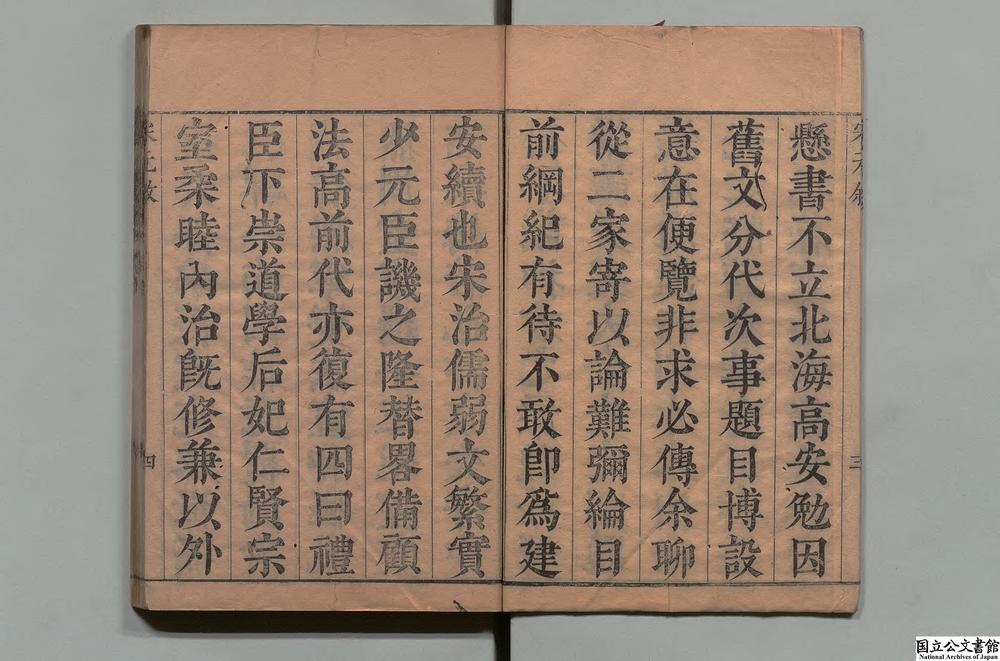 懸書不立北海高安勉因
舊文分代次事題目博設
意在便覽非求必傳余聊
從二家寄以論難彌綸目
前綱紀有待不敢卽爲建
安續也宋治儒弱文繁實
少元臣譏之隆替畧備顧
法高前代亦復有四曰禮
臣下崇道學后妃仁賢宗
室柔睦內治旣修兼以外
三
四
国立公文書館
National Archives of Japan